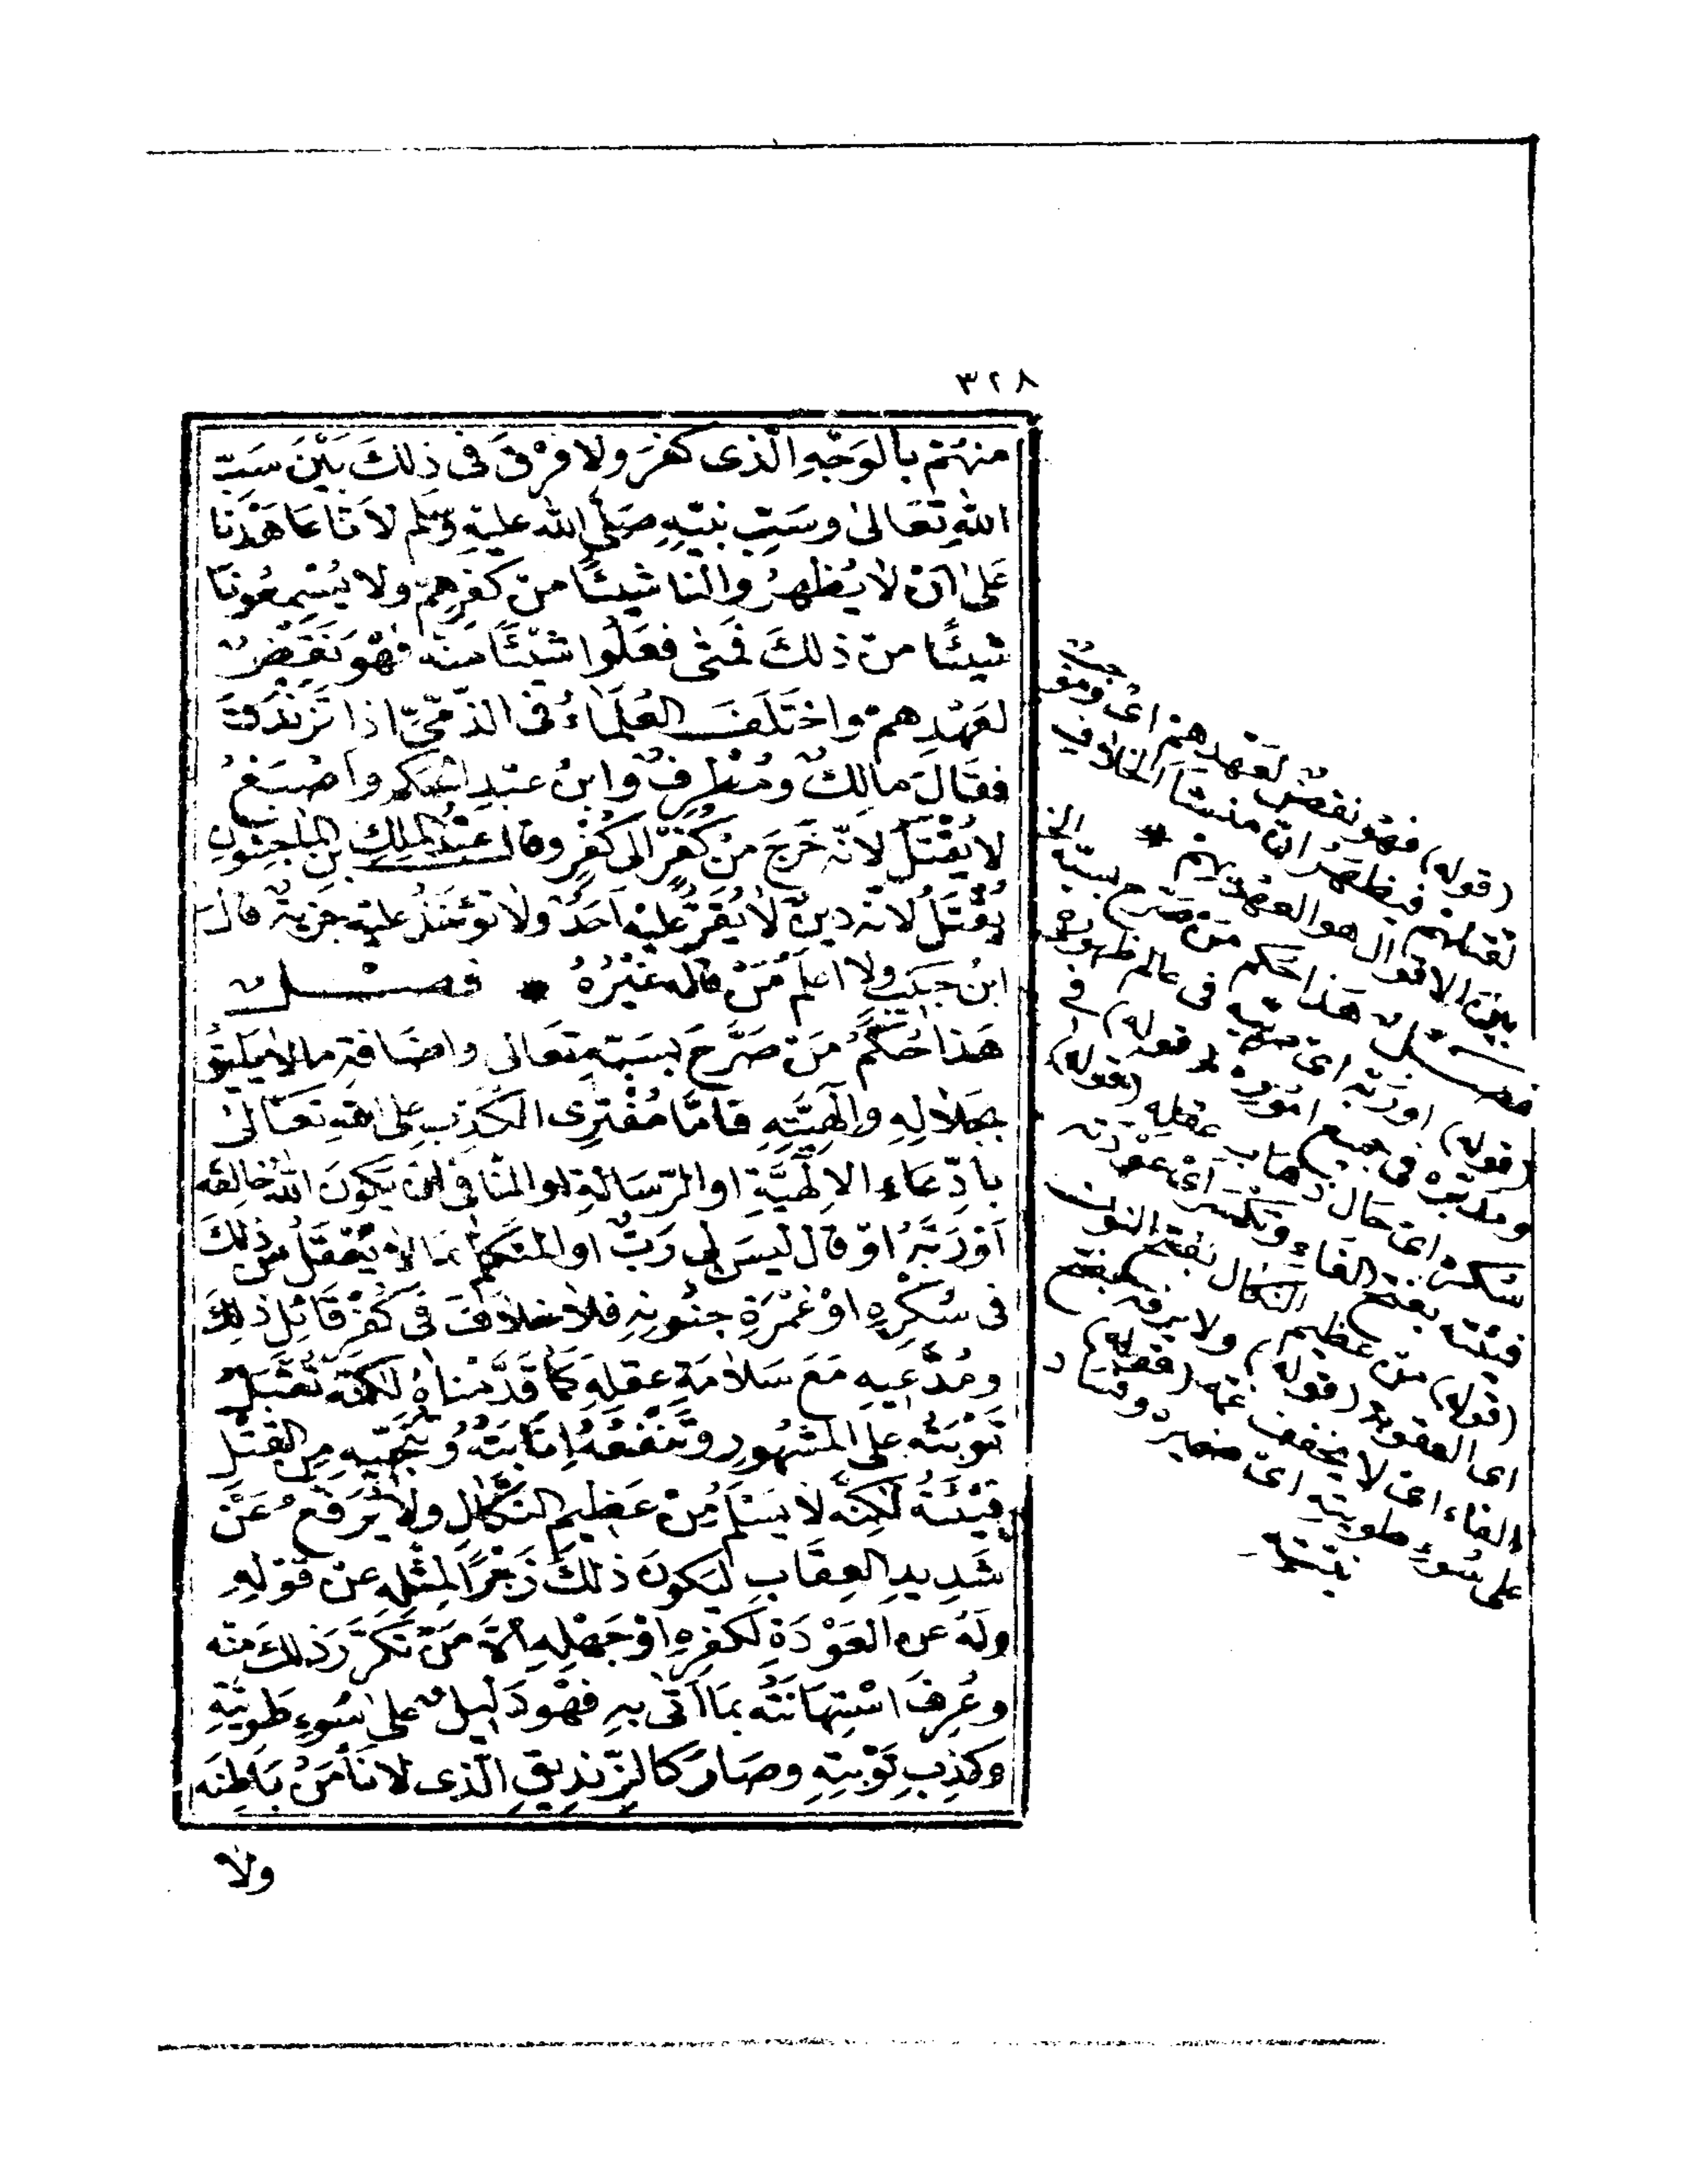 ٣٢٨
منهُم بالوَجْهِ الّذى كفَرَ ولا فَرْقَ فى ذٰلكَ بَيْنَ سَبِّ
اللهِ تعَالىٰ وسَبِّ نبيّهِ صَلّى الله عليهِ وسَلّم لاَنّا عَاهَدْنَا
عَلىٰ اَنْ لا يُظهِرُوا لنا شيئًا منْ كفرِهِمْ ولا يُسْمِعُونَا
شيئًا منْ ذٰلكَ فمَتى فعَلُوا شَيْئًا منهُ فهُو نَقْضٌ
لعَهْدِهمْ واختَلَفَ العُلَمَاءُ فى الذّمّىّ اذا تَزَنْدَقَ
فقَالَ مالِكٌ ومُطرِفٌ وابنُ عبْدِ الحكم واَصْبَغُ
لا يُقْتَلُ لانّه خَرَجَ مِنْ كُفْرٍ الى كُفْرٍ وقال عبْدُ الملِكِ بن الماجِشونِ
يُقْتَلُ لانّه دينٌ لا يُقَرُّ عليْهِ اَحَدٌ ولا تؤخَذُ عليهِ جِزيةٌ قالَ
ابنُ حبيبٍ ولا اَعلَمُ مَنْ قاله غَيْرُهُ * فصْــلٌ
هَذا حُكمُ مَنْ صَرَّحَ بسَبّهِ تعَالى واضَافةِ ما لا يليقُ
بجَلالهِ واِلٰهيَّتِهِ فامّا مُفْتَرِى الكَذِبِ على اللهِ تعَالىٰ
بادّعَاءِ الاِلٰهيَّةِ اوالرّسَالةِ اوالنّافى اَنْ يَكونَ اللهُ خالِقَه
اَوْ رَبَّهُ اوْ قال ليسَ لى رَبٌّ اوالمُتَكلّمُ بمَا لا يُعْقَلُ من ذٰلكَ
فى سُكْرِهِ اوْ غَمْرَةِ جنُونهِ فلا خلافَ فى كُفْرِ قَائِلِ ذٰلكَ
ومُدَّعيهِ مَعَ سَلامَةِ عقلِهِ كمَا قَدَّمْناهُ لكنّهُ تُقْبَلُ
تَوْبَتُه على المَشْهُورِ وتَنْفَعُهُ اِنَابَتُهُ وتُنْجّيهِ منَ القَتْلِ
فَيْئَتُهُ لكنّه لا يَسْلَمُ مِنْ عَظِيمِ النّكَالِ ولا يُرَفَّهُ عَنْ
شَدِيدِ العِقَابِ ليَكونَ ذٰلكَ زَجْرًا لمِثْلِهِ عنْ قَوْلهِ
ولَهُ عن العَوْدَةِ لكفرِهِ اَوْ جَهْلِهِ اِلّا مَنْ تَكَرَّرَ ذٰلكَ منْه
وعُرِفَ اسْتِهَانَتُه بمَا اَتى بهِ فهُو دَليلٌ على سُوءِ طَويّتِهِ
وكَذِبِ تَوْبتِهِ وصَارَ كالزّنْدِيقِ الّذى لا نَأمَنُ بَاطِنَه
ولا
(قوله) فهُو نقضٌ لعَهْدهم اى وموجب
لقتلهم فيظهرُ انّ منشأ الخلاف
بين الاقوال هو العهْد * الخ
فصْــل هذا حكم من صرّح بسبّه
(قوله) اوربّه اى فى عالم ظهوره
ومدبّره فى جميع اموره (قوله) فى
سكره اى حال ذهاب عقله (قوله)
فيئته بفتح الفاء وتكسر اى عودته
(قوله) من عظيم النّكال بفتح النون
اى العقوبة (قوله) ولا يرفّه بفتح
الفاء اى لا يخفف عنه (قوله)
على سُوء طويته اى ضميره وفساد
نيّته